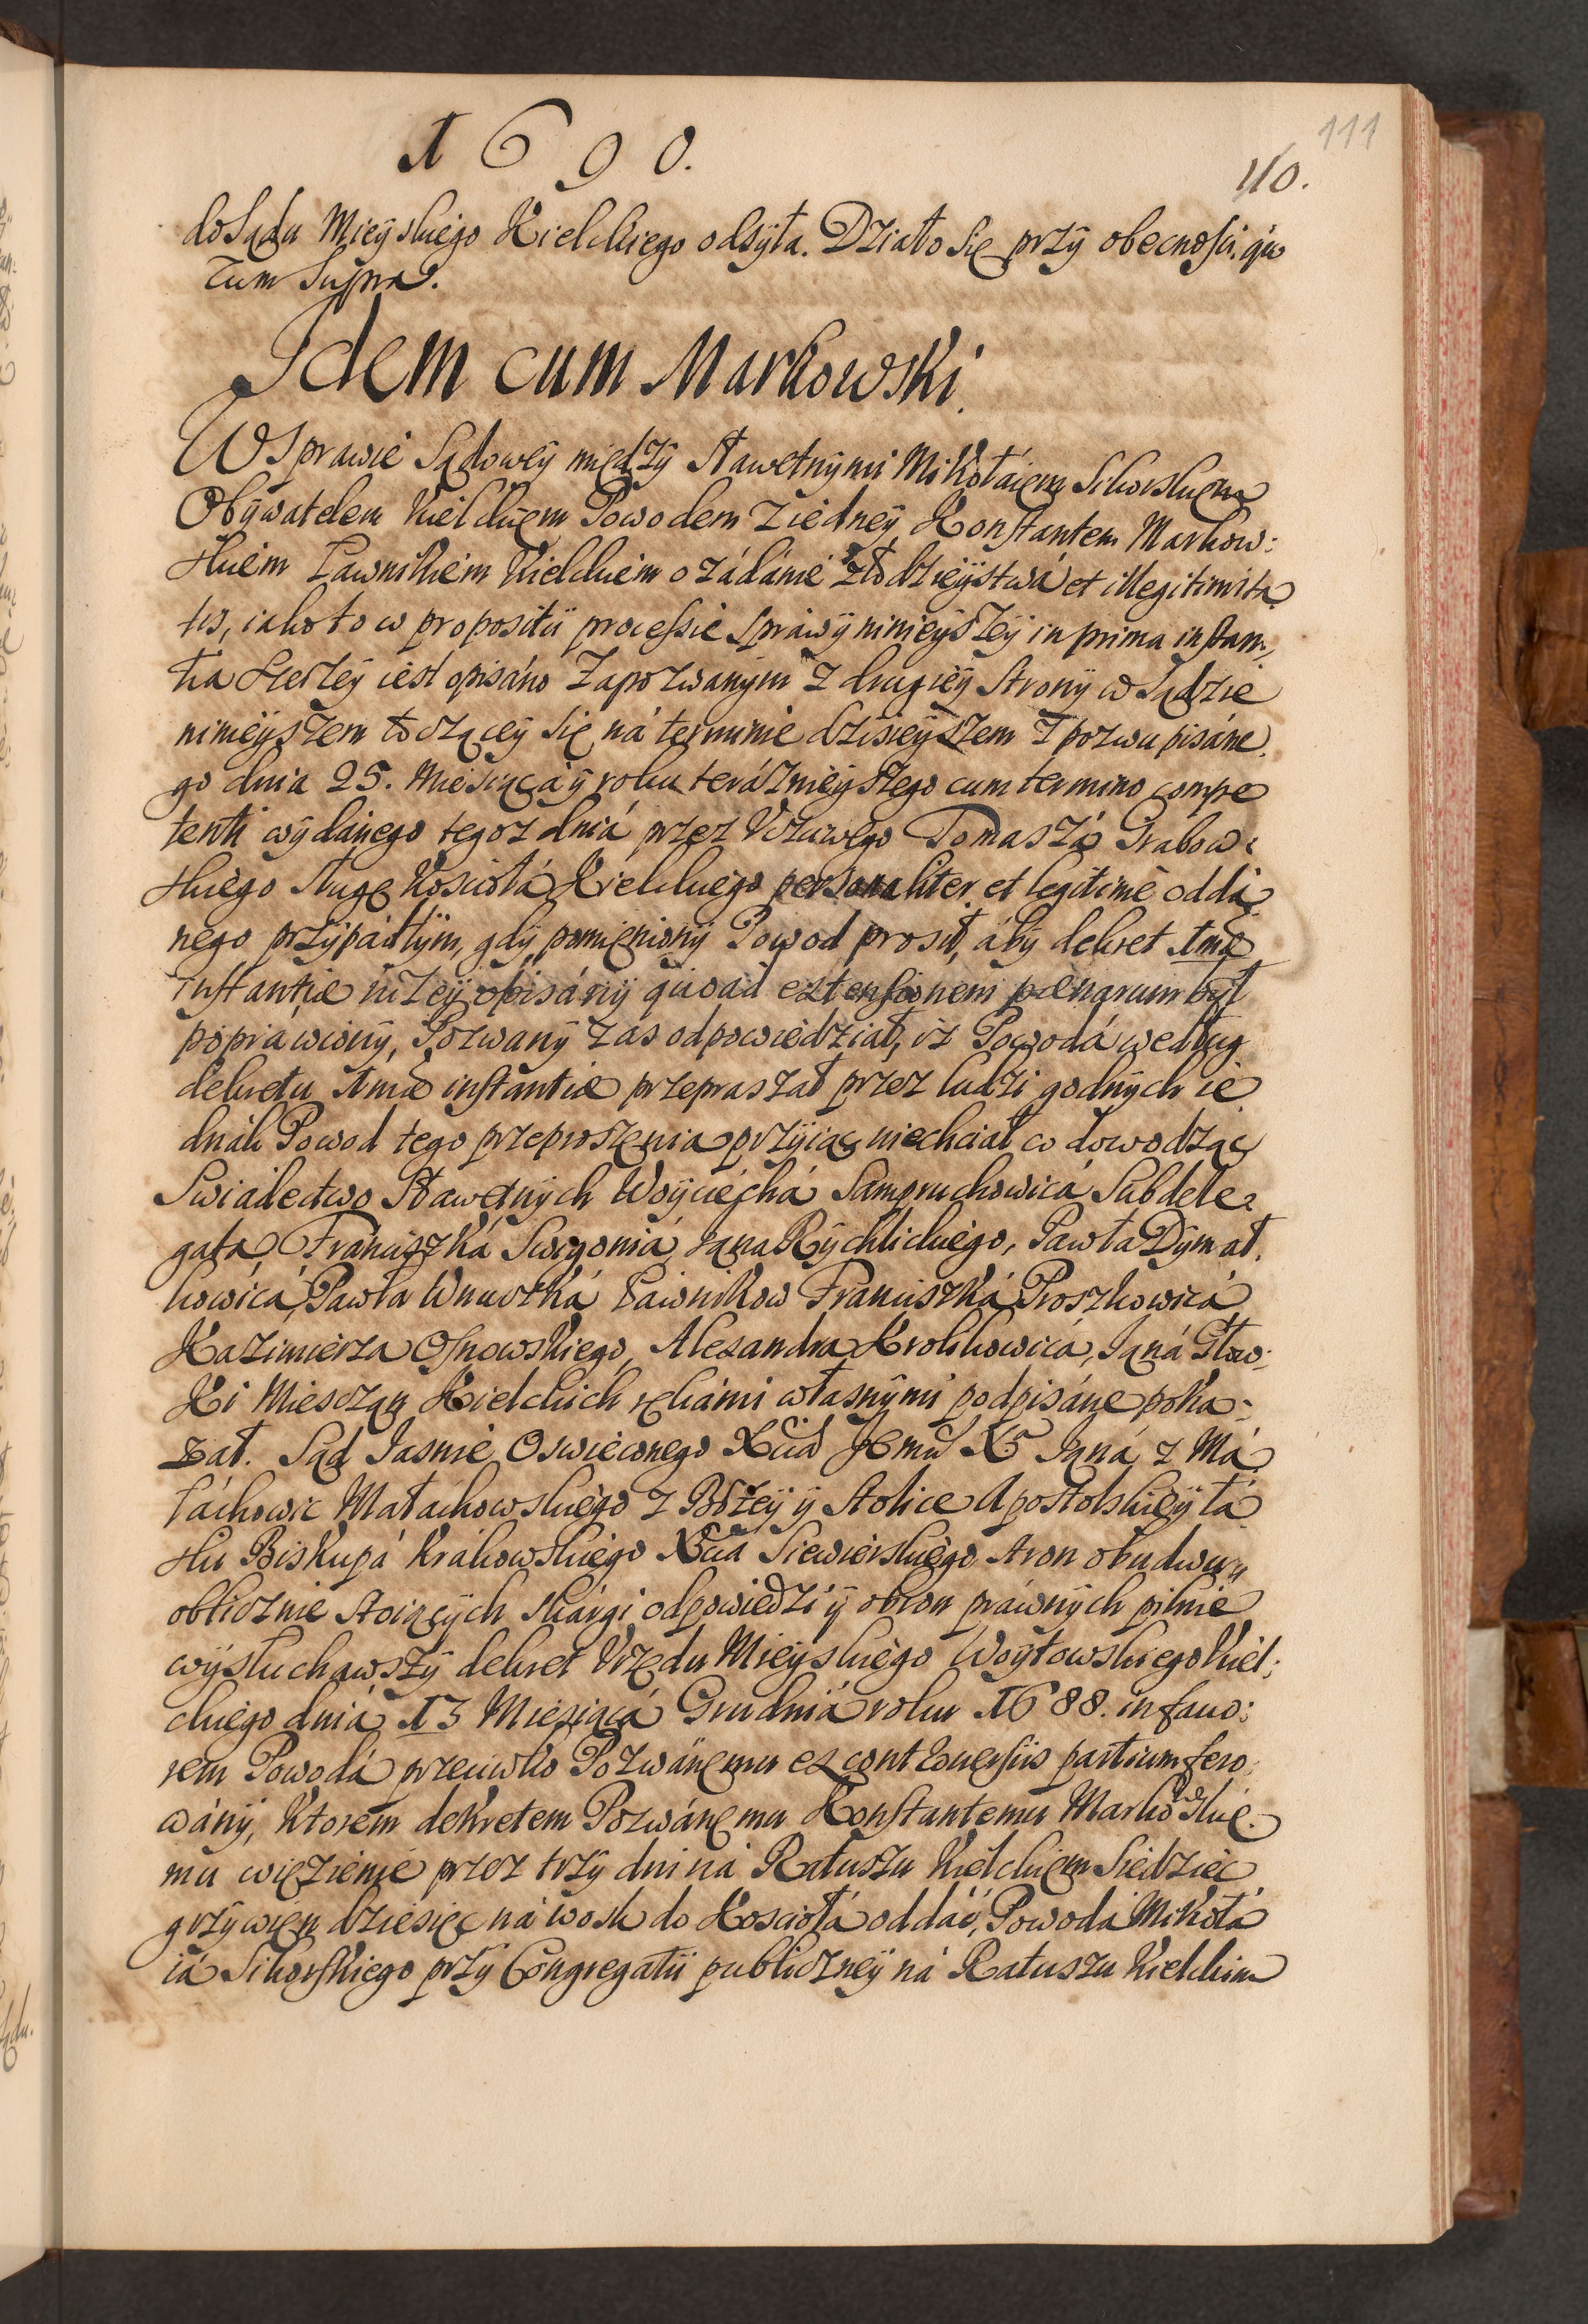 1690.
111
110.
do Sądu Mieÿskiego Kielckiego odsÿła. Działo się przÿ obecności. quo
rum supra.
Idem cum Markowski.
W Sprawie Sądoweÿ międzÿ Sławetnÿmi Mikołáiem Sikorskiem
Obÿwatelem Kielckiem Powodem z iedneÿ Konstantem Markow:
skiem Ławnikiem Kielckiem o zádánie złodzieÿstwá et illegitimita
tis, iako to w propositiÿ processie sprawÿ ninieÿszeÿ in prima instan,
tia szerzeÿ iest opisáno Zapozwanÿm z drugieÿ stronÿ w Sądzie
ninieÿszem toczączeÿ się ná terminie dzisieÿszem z pozwu pisáne
go dnia 25. Miesiącá ÿ roku teráznieÿszego cum termino compe
tenti wÿdanego tegoz dniá przez Vczciwego Tomaszá Grabow:
skiego sługę Kosciołá Kielckiego personaliter et legitime oddá
nego przÿpádłÿm, gdÿ pomieniony Powod prosił, ábÿ dekret 1mæ
instantiæ nizeÿ opisánÿ quoad extensionem pænarum bÿł
poprawionÿ, Pozwanÿ zás odpowiedział, iż Powodá według
dekretu 1mæ instantiæ przepraszał przez ludzi godnÿch ie
dnák Powod tego przeproszenia przÿiąc niechciał co dowodząc
Swiadectwo Sławetnÿch Woÿciechá Sampruchowicá Subdele
gata, Franciszká Swigonia, Jana Rÿchlickiego, Pawła Dÿmat
kowicá, Pawła Wnuczká Ławnikow Franciszká Proszkowicá
Kazimierza Osnowskiego, Alexandra Krolikowicá, Janá Głow:
ki Miesczan Kielckich rękámi własnÿmi podpisáne poka:
zał. Sąd Jasnie Oswieconego Xcia Jmci X Janá z Má
łáchowic Małachowskiego z Bożeÿ ÿ Stolice Apostolskieÿ łá
ski Biskupá Krakowskiego Xcia Siewierskiego stron obudwu
oblicznie stoiącÿch skárgi odpowiedzi ÿ obron práwnÿch pilnie
wÿsłuchawszÿ dekret Vrzędu Mieÿskiego Woÿtowskiego Kiel:
ckiego dniá 13 Miesiącá Grudniá roku 1688. in favo:
rem Powodá przeciwko Pozwánemu ex controversiis partium fero,
wánÿ, Ktorem dekretem Pozwánemu Konstantemu Markowskie:
mu więzienie przez trzÿ dni ná Ratuszu Kielckiem Siedziec
grzÿwien dziesięc ná wosk do Kosciołá oddać, Powodá Mikołá
iá Sikorskiego przÿ Congregatiÿ publiczneÿ ná Ratuszu Kielckim